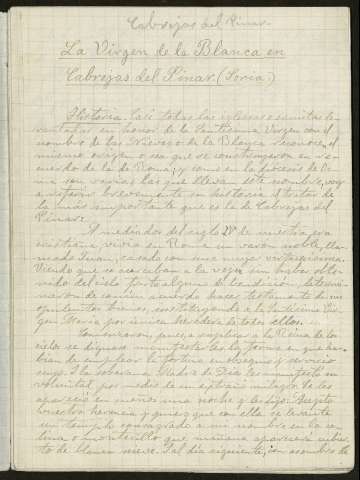 Cabrejas del Pinar
La Virgen de la Blanca en
Cabrejas del Pinar (Soria)
Historia. Casi todas las iglesias o ermitas le-
vantadas en honor de la Santísima Virgen con el
nombre de las Nieves o de la Blanca reconocen el
mismo origen o sea que se construyeron en re-
cuerdo de la de Roma; y como en la diócesis de Os-
ma son varias las que llevan este nombre, voy
a referir brevemente su historia al tratar de
la más importante que es la de Cabrejas del
Pinar.
A mediados del siglo IV de nuestra era
cristiana vivía en Roma un varón noble, lla-
mado Juan, casado con una mujer virtuosísima.
Viendo que se acercaban a la vejez sin haber obte-
nido del cielo fruto alguno de bendición, determi-
naron de común acuerdo hacer testamento de sus
opulentos bienes, constituyendo a la Santísima Vir-
gen María por única heredera de todos ellos.
Comenzaron, pues, a suplicar a la Reina de los
cielos se dignase manifestarles la forma en que ha-
bían de emplear la fortuna en obsequio y servicio
suyo. I la soberana Madre de Dios les manifestó su
voluntad por medio de un extraño milagro. Se les
apareció en sueños una noche y les dijo: Acepto
vuestra herencia y quiero que con ella se levante
un templo consagrado a mi nombre en la co-
lina o montecillo que mañana aparecerá cubier-
to de blanca nieve. Y al día siguiente, con asombro de